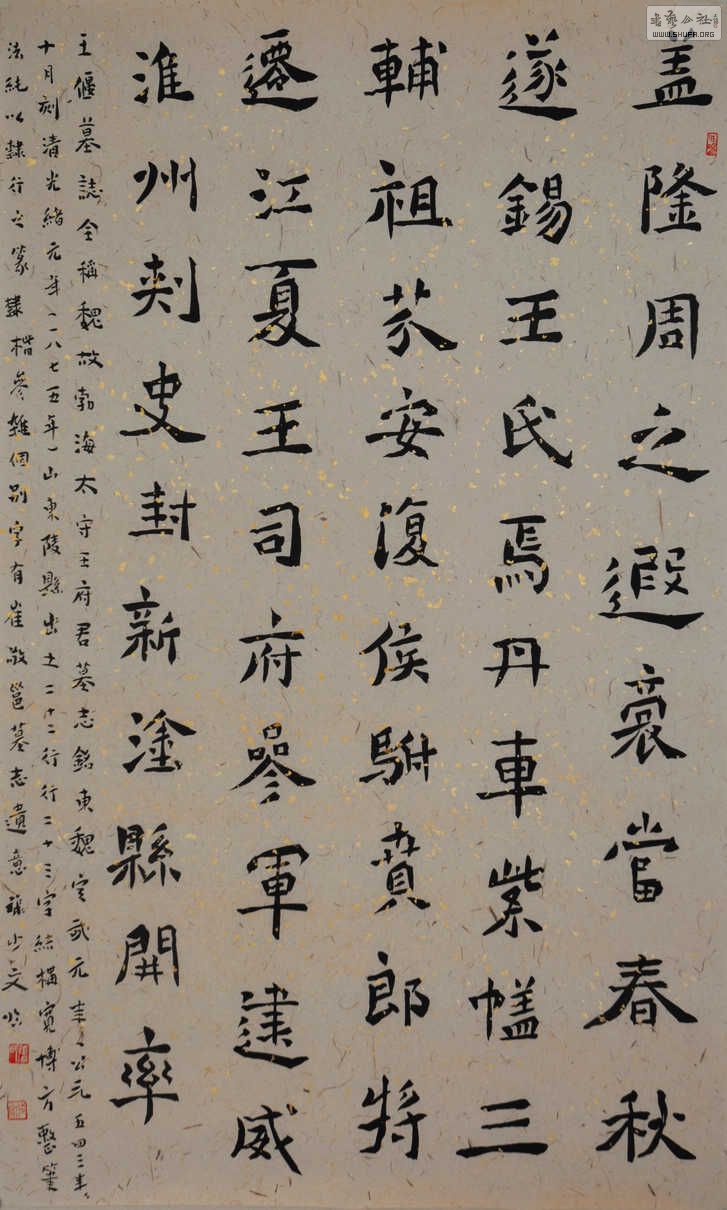 盖隆周之遐裔當春秋
遂錫王氏焉丹車紫幰三
輔祖芬安復侯駙賁郎將
遷江夏王司府參軍建威
淮州刺史封新塗縣開率
王偃墓誌全稱魏故勃海太守王府君墓志銘東魏定武元年公元五四三年
十月刻清光緒元年一八七五年山東陵縣出土二十二行行二十三字結構寬博方整筆
法純以隸行之篆隸楷參雜個別字有崔敬邕墓志遺意 少文临
書藝公社
WWW.SHUFA.ORG